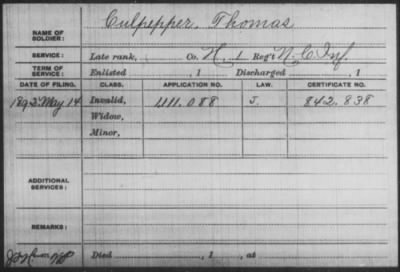 NAME OF SOLDIER: Culpepper, Thomas
SERVICE: Late rank, Co. H, 1 Reg't N.C. Inf.
TERM OF SERVICE: Enlisted , 1 Discharged , 1
DATE OF FILING. CLASS. APPLICATION NO. LAW. CERTIFICATE NO.
1892 May 14 Invalid, 1111.088 J. 842.838
Widow,
Minor,
ADDITIONAL SERVICES:
REMARKS:
Died , 1 , at